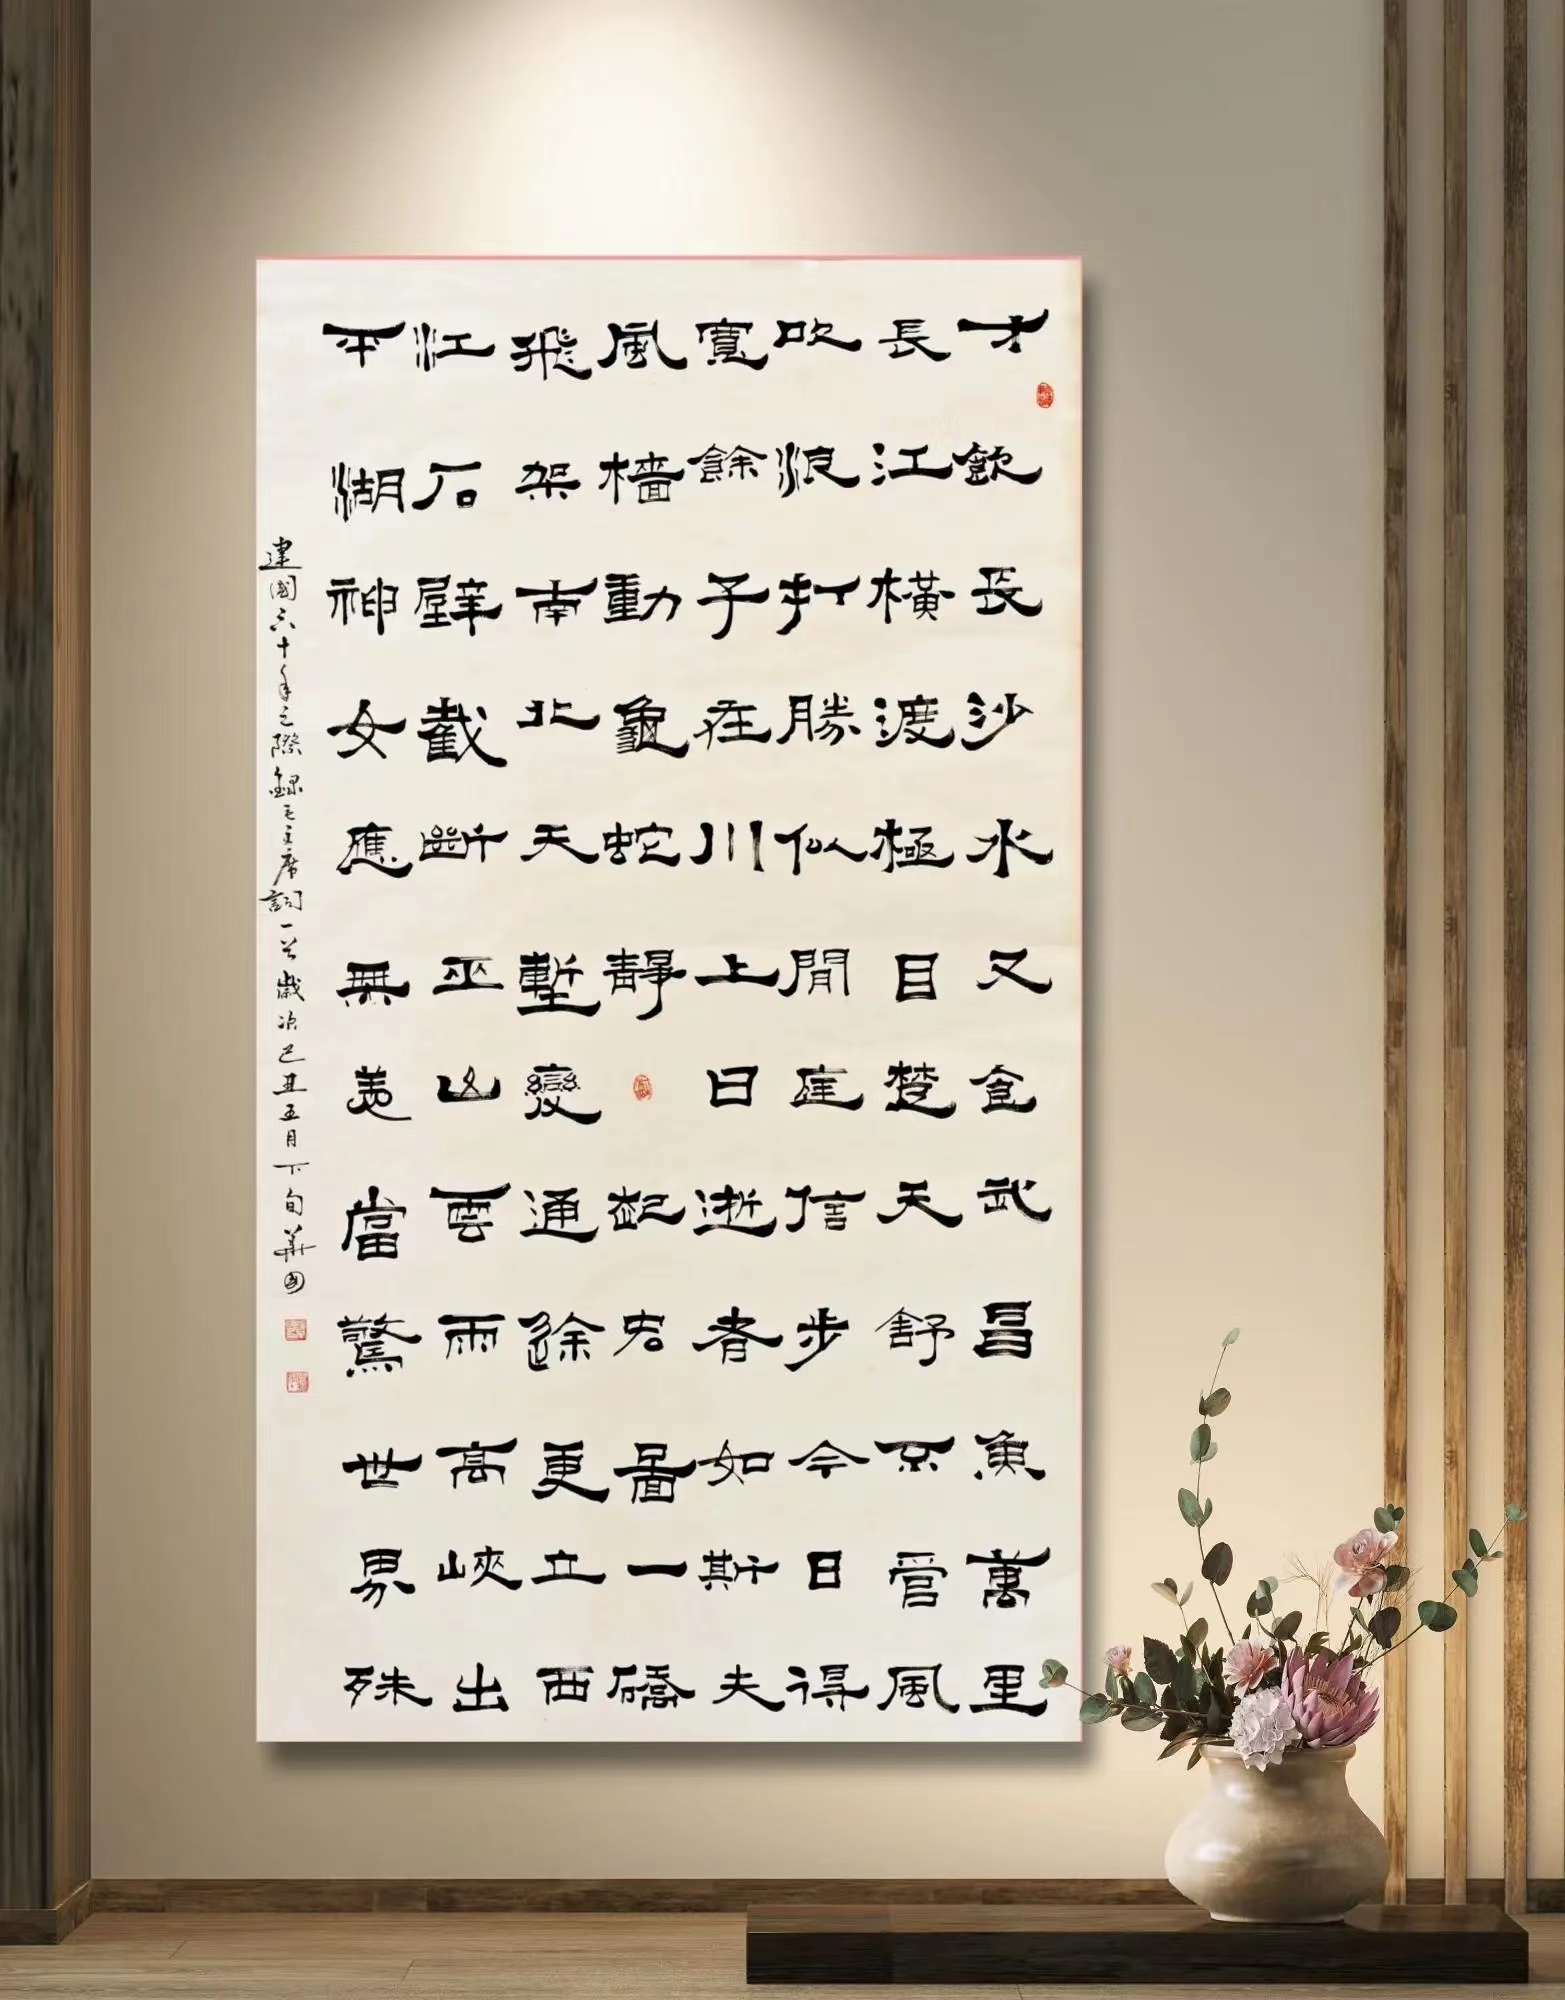 才飲長沙水又食武昌魚萬里
長江橫渡極目楚天舒不管風
吹浪打勝似閒庭信步今日得
寬餘子在川上曰逝者如斯夫
風檣動龜蛇靜起宏圖一橋
飛架南北天塹變通途更立西
江石壁截斷巫山雲雨高峽出
平湖神女應無恙當驚世界殊
建國六十年之際錄毛主席詞一首歲次己丑五月下旬華國